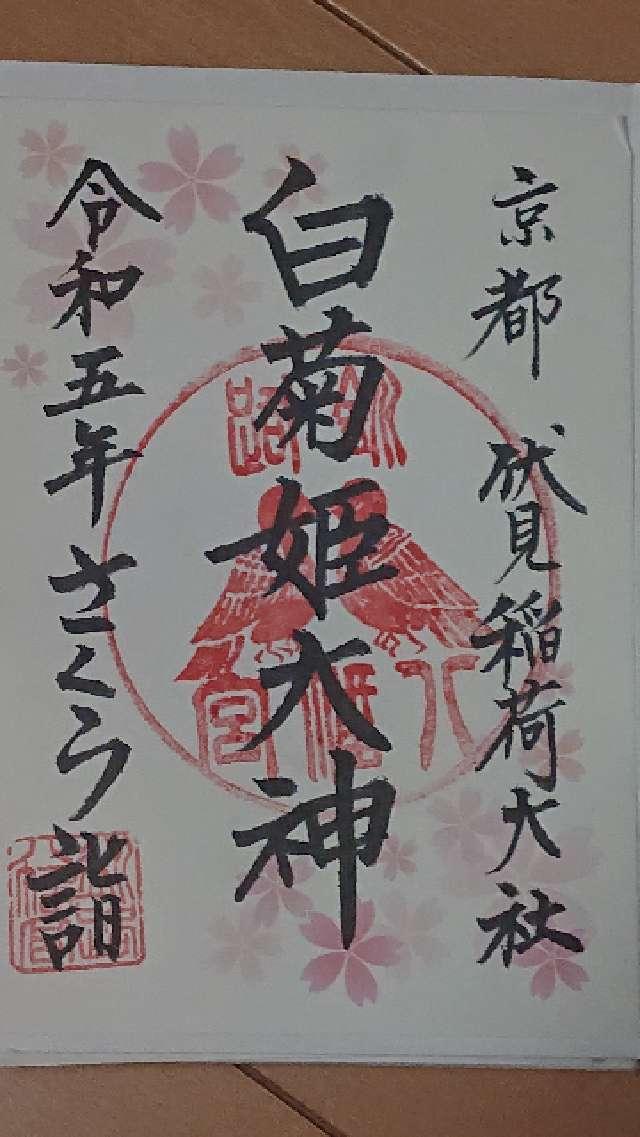 京都 伏見稲荷大社
白菊姫大神
令和五年さくら詣
八幡宮